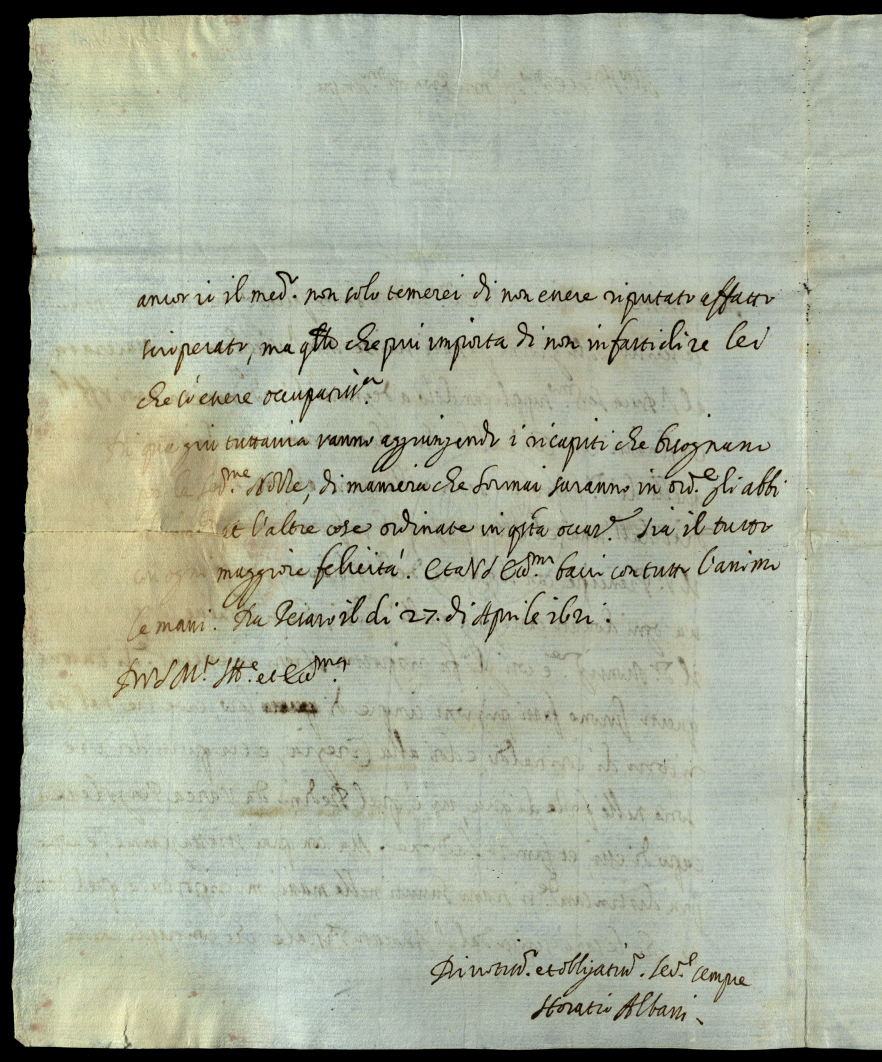 ancor io il med.º non solo temerei di non essere riputato affatto
scioperato, ma q̃llo che più importa di non infastidire lei
che sò essere occupatiss.ª
Di quà più tuttavia vanno aggiungendo i ricapiti che bisognano
le Ser.me Nozze, di maniera che hormai saranno in ord.e gli abbi
et l'altre cose ordinate in q̃sta occas.e sia il tutto
maggiore felicità. Et a V S Ecc.ma bacio con tutto l'animo
le mani. Da Pesaro il di 27. di Aprile 1621.
Di V S M.to Ill.e et Ecc.ma
Divotiss.º et obligatiss.º Ser.e sempre
Horatio Albani